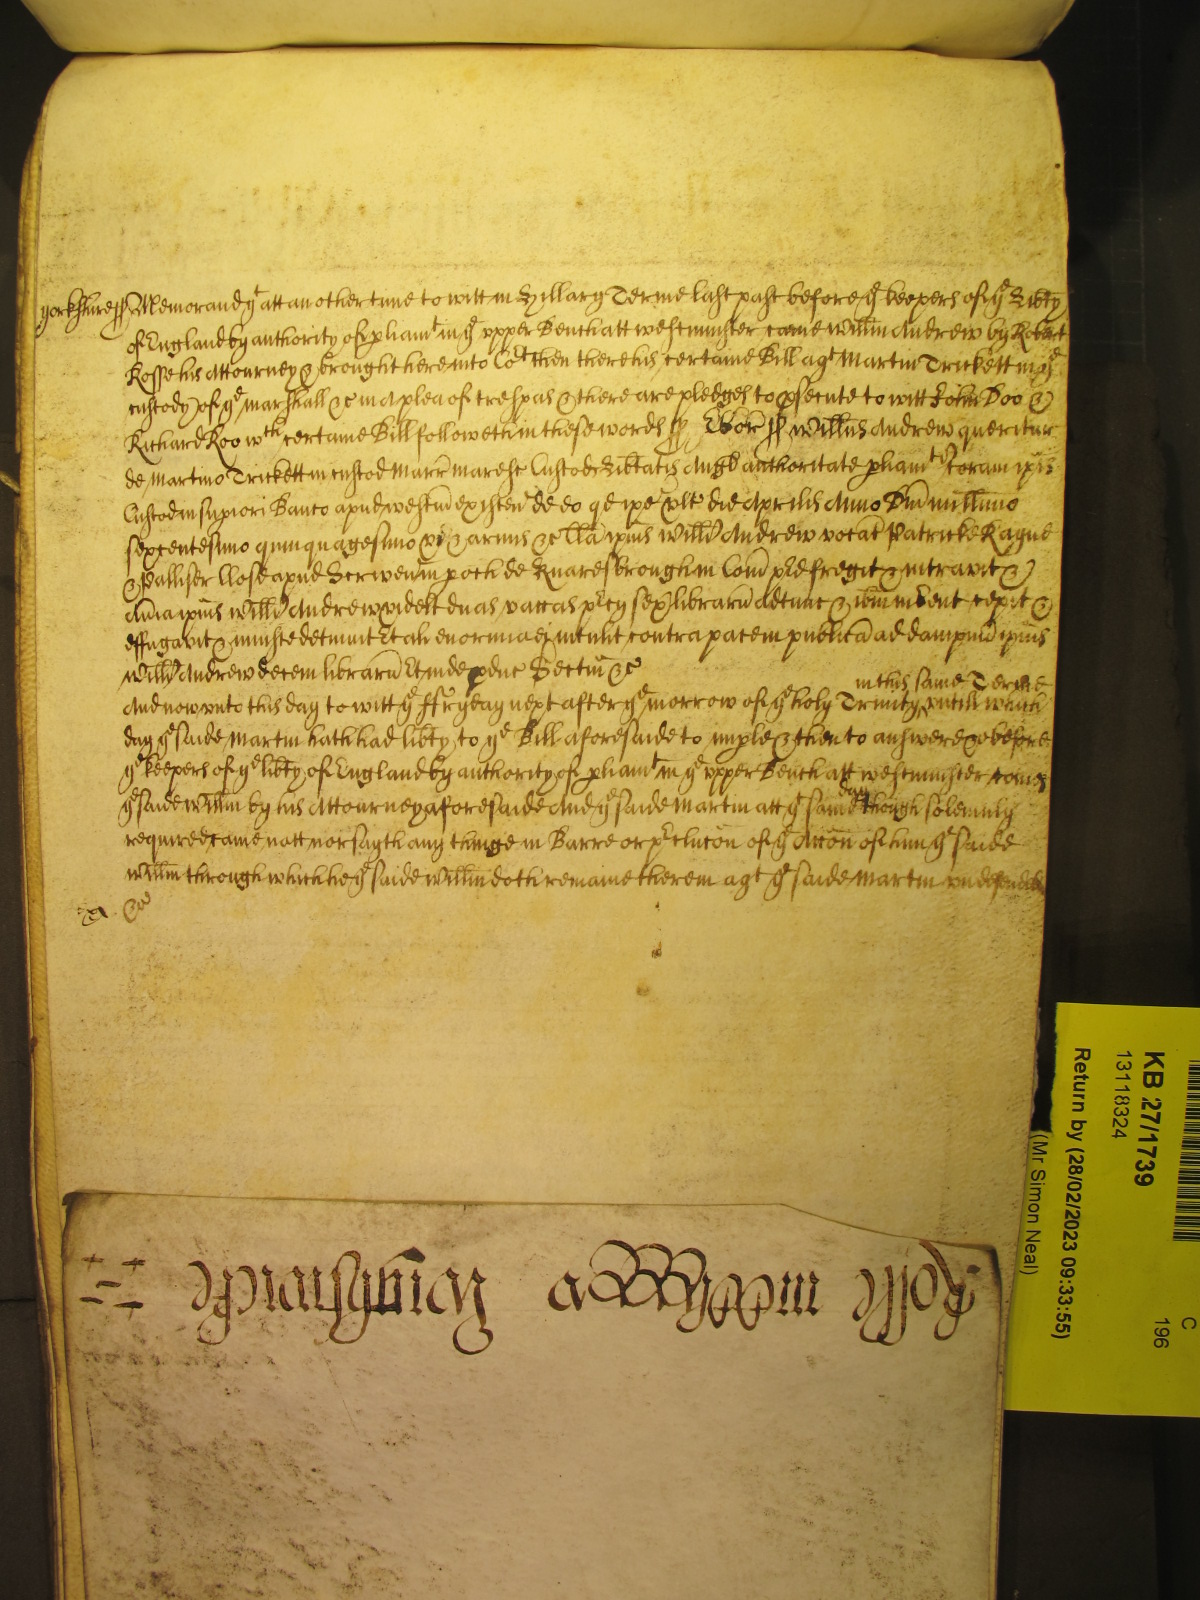 yorkshire ss Memorand yt att an other time to witt in Hillary Terme last past before ye keepers of ye Libty
of England by authority of pliamt in ye vpper Bench att westminster came Willm Andrew by Robert
Rosse his Attourney & brought here into Cot then there his certaine Bill agt Martin Trickett in ye
custody of ye marshall &c in a plea of trespas & there are pledges to psecute to witt John Doo &
Richard Roo wch certaine Bill followeth in these words ss Ebor ss Willus Andrew queritur
de martino Trickett in custod marr maresc Custod Libtatis Angl authoritate pliamt coram ipis
Custod in supiori Banco apud westm existen de eo qd ipe vlt die Aprilis Anno Dni millimo
sexcentesimo quinquagesimo vi & armis &c Clm ipius Willi Andrew vocat Patricke Kague
& Palliser Close apud Scrwen in poch de Knaresbrough in Com pred fregit & intravit &
Aulia ipius Willi Andrew videlt duas vaccas prcy sex librar adtunc & ibm invent cepit &
effugavit & iniuste detinuit Et alia enormia ei intulit contra pacem publica ad dampnu ipius
Willi Andrew decem librar Et inde pduc Sectm &c
in this same Terme
And now vnto this day to witt ye ffryday next after ye morrow of ye holy Trinity vntill which
day ye saide Martin hath had libty to ye Bill aforesaide to imple & then to answere &c before
ye keepers of ye libty of England by authority of pliamt in ye vpper Bench att westminster comes
day
ye saide Willm by his Attourney aforesaide And ye saide Martin att ye same though solemnly
required came nott nor sayth any thinge in Barre or preclucon of ye Accon of him ye saide
Willm through which he ye saide Willm doth remaine therein agt ye saide Martin vndefended
&c
Rosse
KB 27/1739
13118324
Return by (28/02/2023 09:33:55)
(Mr Simon Neal)
C
196